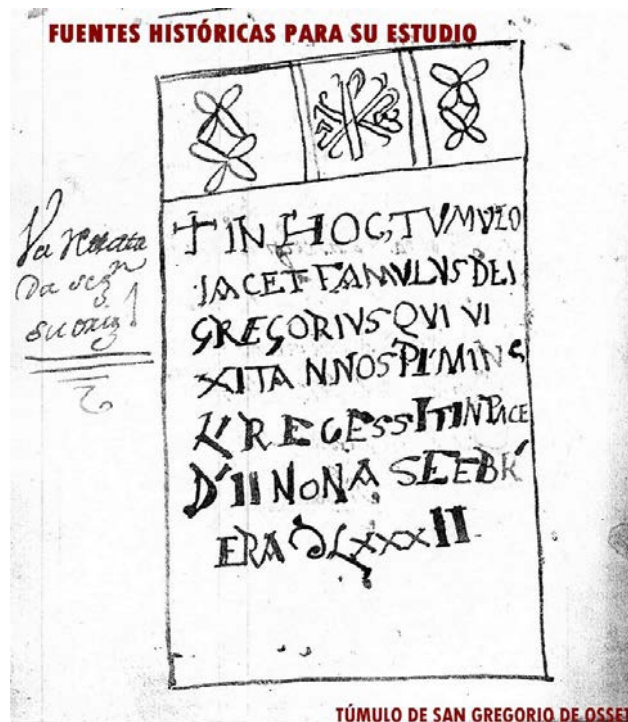 FUENTES HISTÓRICAS PARA SU ESTUDIO
Va
da segn
su orig!
† IN HOC TVMVLO
IACET FAMVLVS DEI
GREGORIVS QVI VI
XIT ANNOS PLMINS
RECESSIT IN PACE
D' II NONAS FEBR
ERA LXXXII
TÚMULO DE SAN GREGORIO DE OSSET